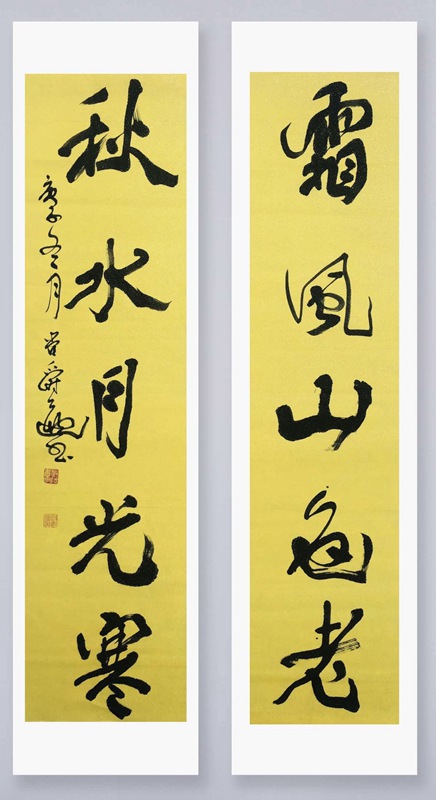 霜風山色老
秋水月光寒
庚子冬月